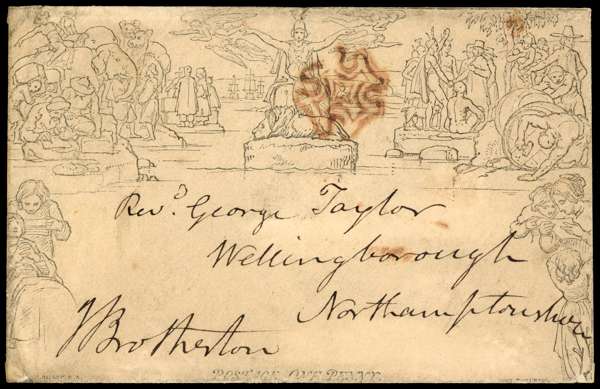 Revd. George Taylor
Wellingborough
Northamptonshire
J Brotherton
POSTAGE ONE PENNY.